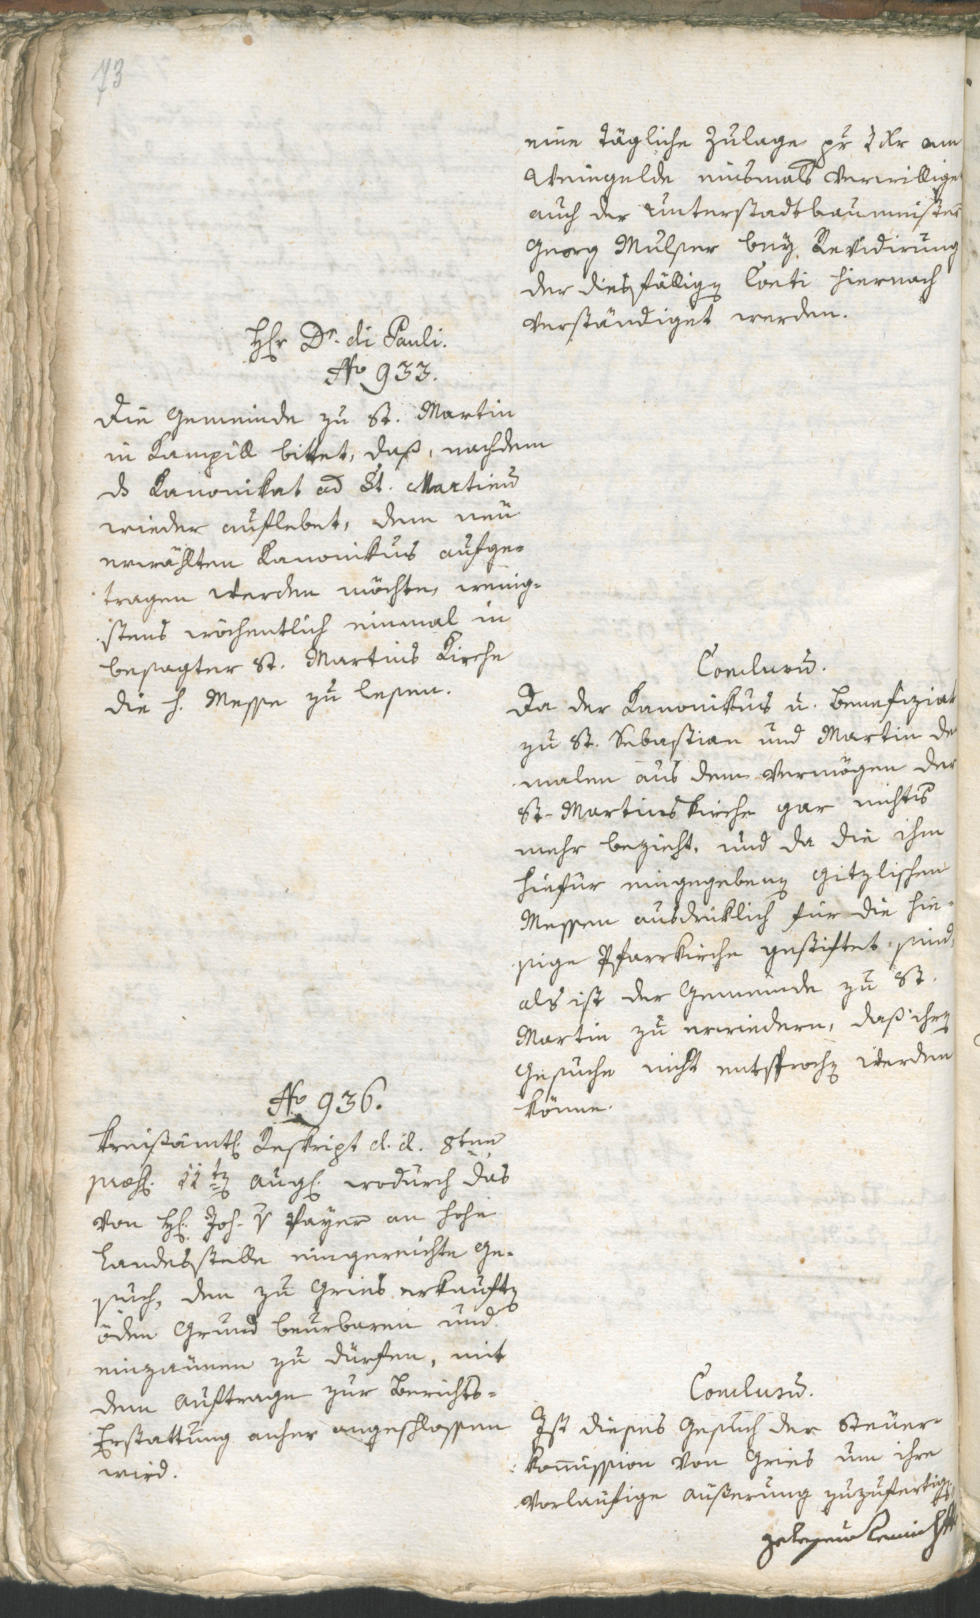 73
eine tägliche Zulage pr 2 Kr am
Weingelde einsmals verwillige
auch der Unterstadtbaumeister
Georg Mulser bey Revidirung
der diesfällign Conti hiernach
verständiget werden.
Hr Dr. di Pauli.
No 933.
Die Gemeinde zu St. Martin
in Kampill bittet, daß, nachdem
ds Kanonikat ad St. Martinum
wieder auflebet, dem neu
erwählten Kanonikus aufge-
tragen werden möchte, wenig-
stens wöchentlich einmal in
besagter St. Martins Kirche
die h. Messe zu lesen.
Conclusum.
Da der Kanonikus u. Benefiziat
zu St. Sebastian und Martin der
malen aus dem Vermögen der
St. Martinskirche gar nichts
mehr bezieht, und da die ihm
hiefür eingegebenen Gitzlischen
Messen ausdrüklich für die hie-
sige Pfarrkirche gestiftet sind,
als ist der Gemeinde zu St.
Martin zu erwiedern, daß ihrem
Gesuche nicht entsprochen werden
könne.
No 936.
Kreisämtl. Reskript d. d. 8ten
praes. 11ten Aug. wodurch das
von H. Joh. v Payer an hohe
Landesstelle eingereichte Ge-
such, den zu Gries erkauften
öden Grund beurbaren und
einzäunen zu dürfen, mit
dem Auftrage zur Berichts-
Erstattung anher angeschlossen
wird.
Conclusum.
Ist dieses Gesuch der Steuer-
kommission von Gries um ihre
vorläufige Äußerung zuzufertigen.